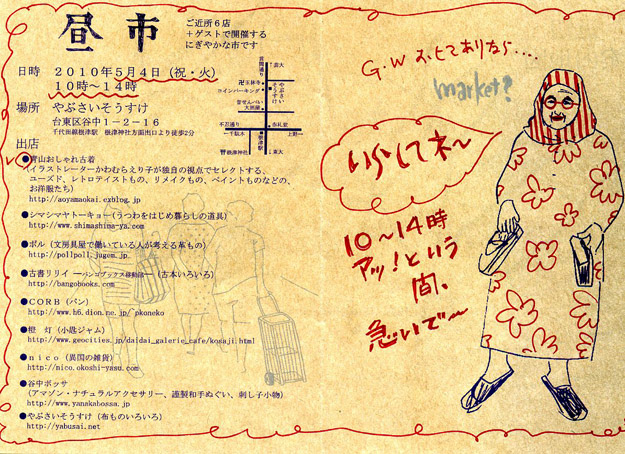 昼市
ご近所6店
+ゲストで開催する
にぎやかな市です
日時 2010年5月4日(祝・火)
10時~14時
場所 やぶさいそうすけ
台東区谷中1-2-16
千代田線根津駅 根津神社方面出口より徒歩2分
出店
●青山おしゃれ古着
(イラストレーターかわむらえり子が独自の視点でセレクトする、
ユーズド、レトロテイストもの、リメイクもの、ペイントものなどの、
お洋服たち)
http://aoyamaokai.exblog.jp
●シマシマヤトーキョー(うつわをはじめ暮らしの道具)
http://www.shimashima-ya.com
●ポル(文房具屋で働いている人が考える革もの)
http://pollpoll.jugem.jp
●古書リリイ ―バンゴブックス移動版―(古本いろいろ)
http://bangobooks.com
●CORB(パン)
http://www.h6.dion.ne.jp/~pkoneko
●橙 灯(小匙ジャム)
http://www.geocities.jp/daidai_galerie_cafe/kosaji.html
●nico(異国の雑貨)
http://nico.okoshi-yasu.com
●谷中ボッサ
(アマゾン・ナチュラルアクセサリー、謹製和手ぬぐい、刺し子小物)
http://www.yanakabossa.jp
●やぶさいそうすけ(布ものいろいろ)
http://yabusai.net
言問通り
東大
卍玉林寺
コインパーキング
やぶさいそうすけ
大黒湯
不忍通り
赤札堂
←千駄木
上野→
根津駅
根津神社
東大
G.W
market?
いらしてネ~
10~14時
アッ!という
間、
急いで~